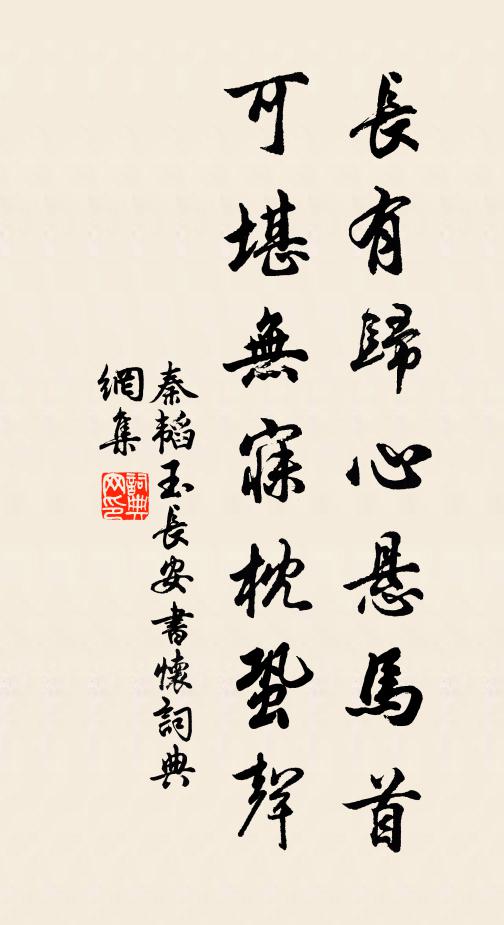 長有歸心悬馬首
可堪無寐枕蛩聲
秦韜玉長安書懷詞典
網集
詞典
网印